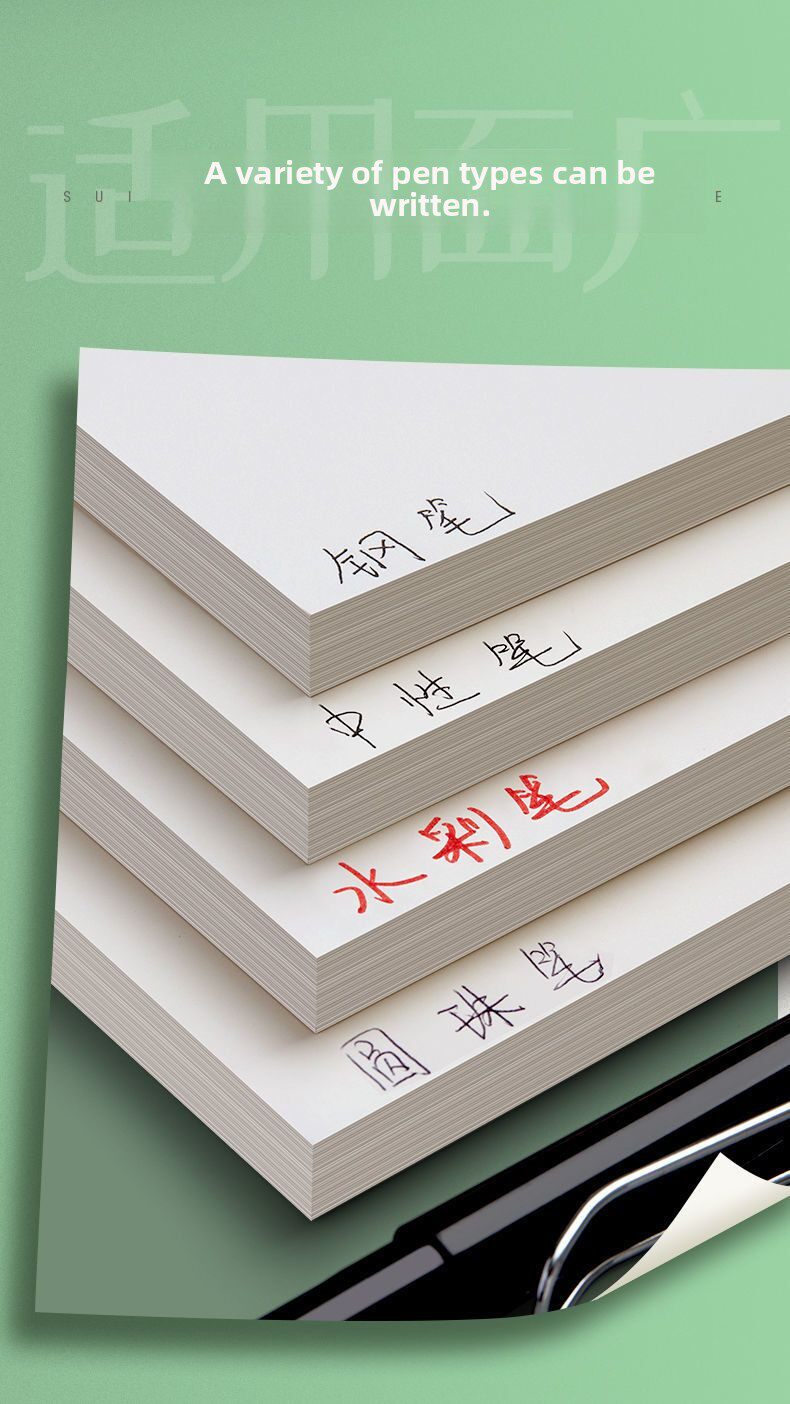 适用面广
A variety of pen types can be
written.
SUI
E
钢笔
中性笔
水彩笔
圆珠笔